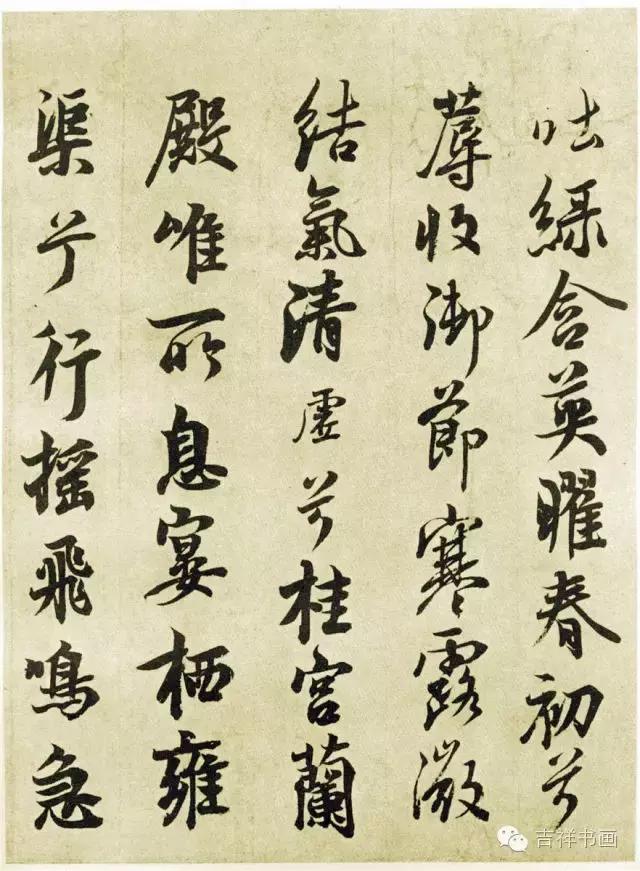 吐綠含英曜春初兮
蓐收御節寒露微
結氣清虛兮桂宮蘭
殿唯所息宴栖雍
渠兮行搖飛鳴急
吉祥书画